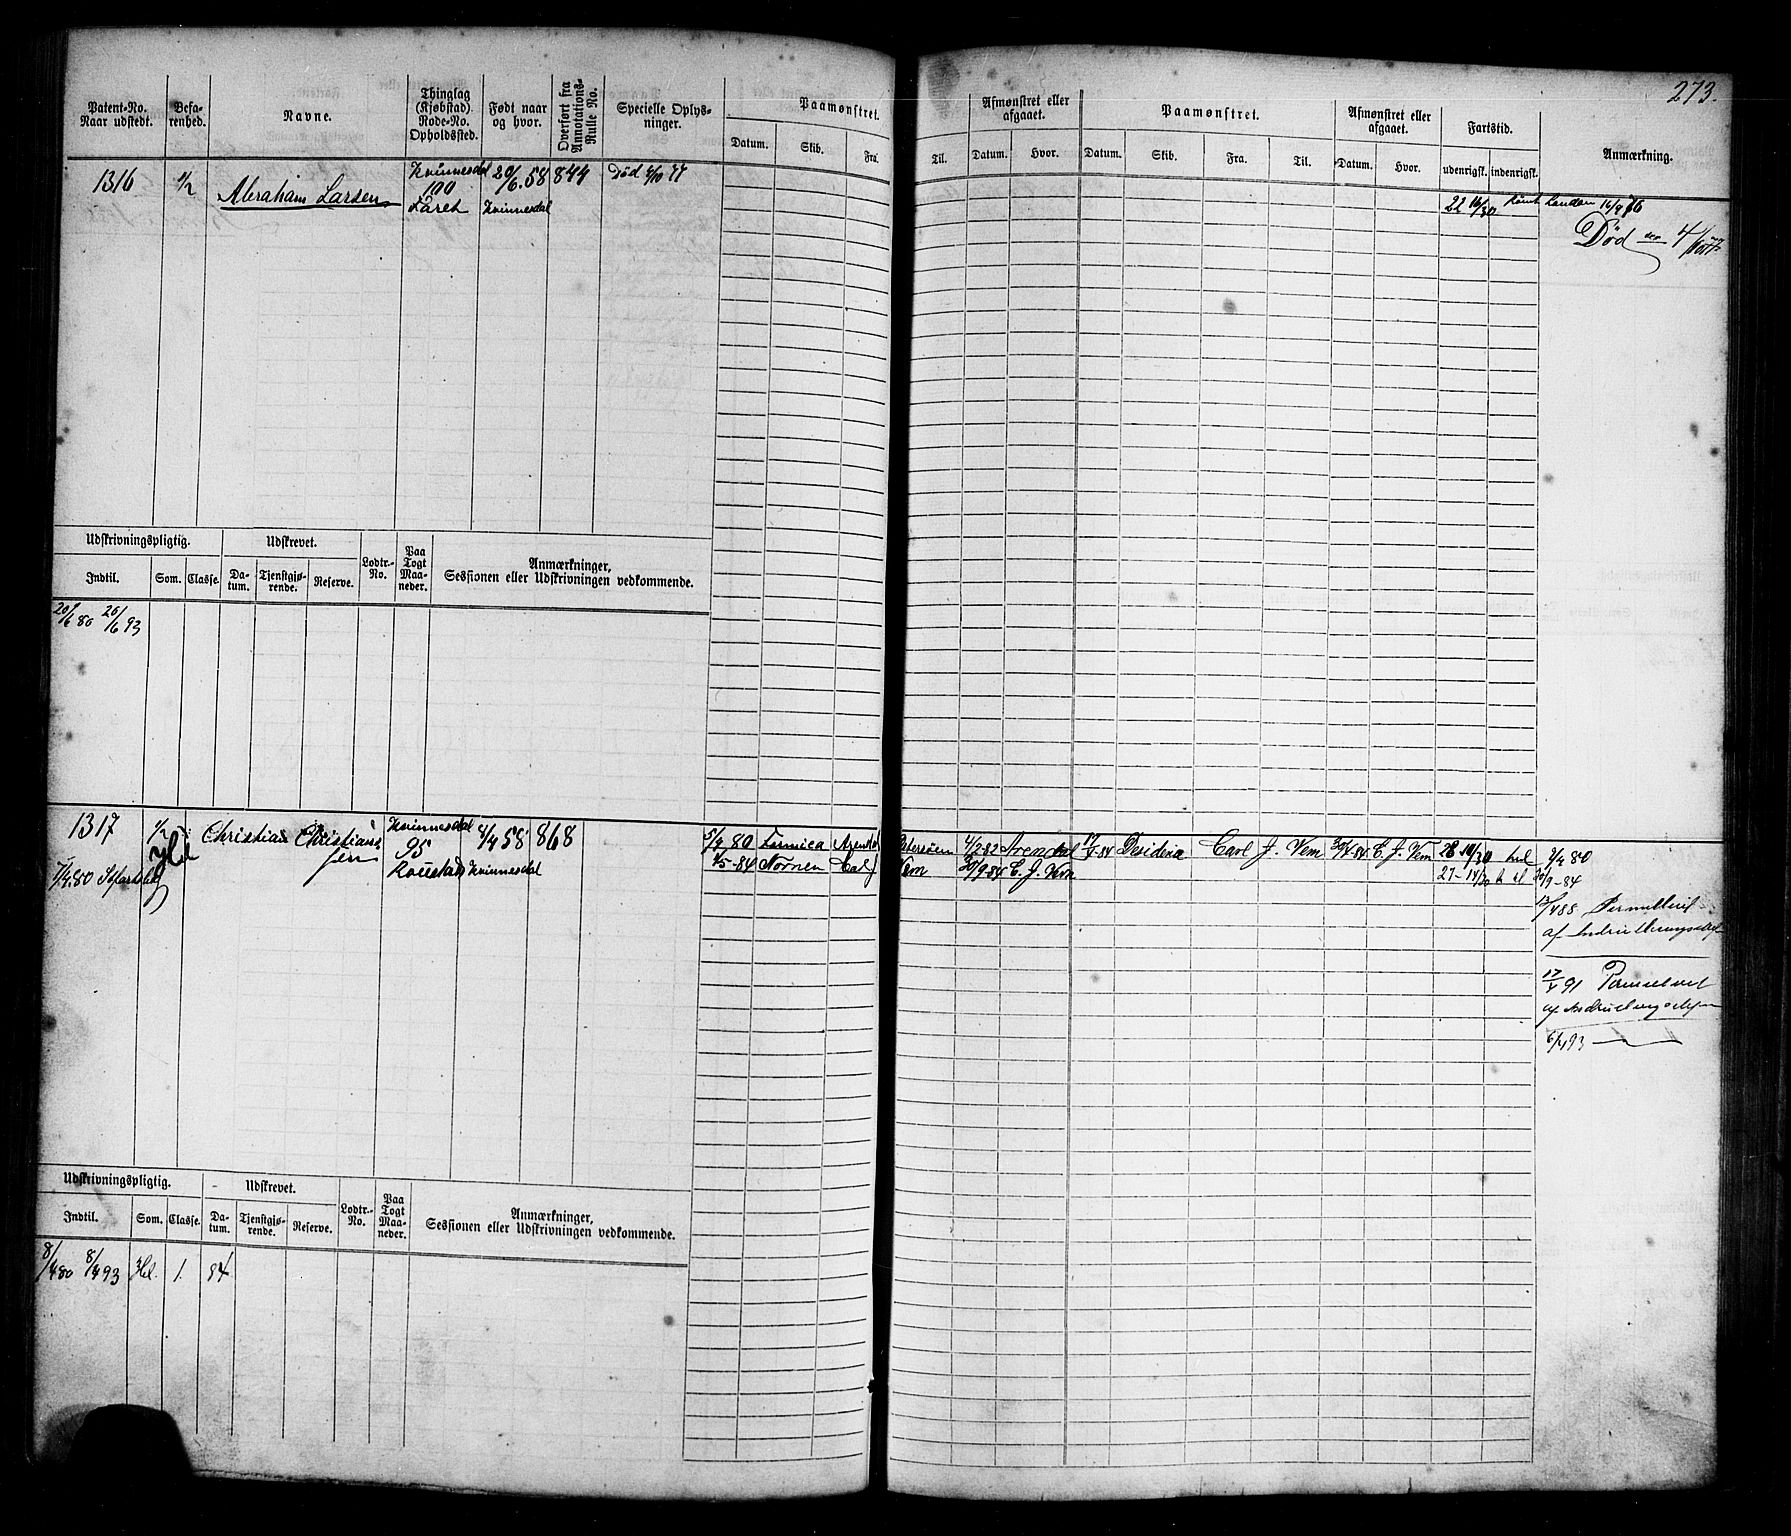 273.
Patent-No. Naar udstedt.
Befarenhed.
Navne.
Thinglag (Kjøbstad). Rode-No. Opholdssted.
Født naar og hvor.
Overført fra Annotations-Rulle No.
Specielle Oplysninger.
Paamønstret.
Datum. Skib. Fra. Til.
Afmønstret eller afgaaet.
Datum. Hvor.
Paamønstret.
Datum. Skib. Fra. Til.
Afmønstret eller afgaaet.
Datum. Hvor.
Fartstid.
udenrigsk. indenrigsk.
Anmærkning.
1316 1/2 Abraham Larsen
Kvinnesdal 100
20/6.58 Kvinnesdal
844
Død 4/10 77
22 16/30
London 16/9 76
Død 4/10 77
Udskrivningspligtig. Udskrevet. Lodtr.-No. Paa Togt Maaneder. Anmærkninger, Sessionen eller Udskrivningen vedkommende.
Indtil. Som. Classe. Datum. Tjenstgjørende. Reserve.
20/6 80 20/6 93
1317 1/2 Christian Christiansen
7/4.80
Kvinnesdal 95
8/4 58 Kvinnesdal
868
5/4 80
4/2-82 Arendal
Desideria Carl J. Vem 30/4-84 C. J. Vem
28 10/30
7/4 80
5-84 Nornen Carl J Vem 30/9-84 C. J. Vem
27-14/30
30/9-84
13/4 88 Permitteret
af
17/4 91
6/4 93
Udskrivningspligtig. Udskrevet. Lodtr.-No. Paa Togt Maaneder. Anmærkninger, Sessionen eller Udskrivningen vedkommende.
Indtil. Som. Classe. Datum. Tjenstgjørende. Reserve.
8/4 80 8/4 93 Hl. 1. 84